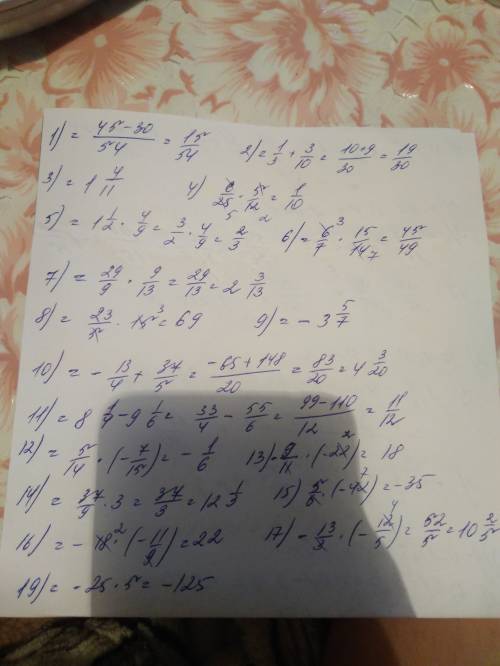 1) = (45-30)/54 = 15/54 2) = 1/3 + 3/10 = (10+9)/30 = 19/30
3) = 1 4/11 4) 6/25 · 5/12 = 1/10
5) = 1 1/2 · 4/9 = 3/2 · 4/9 = 2/3 6) = 6/7 · 15/14 = 45/49
7) = 29/9 · 9/13 = 29/13 = 2 3/13
8) = 23/5 · 15 = 69 9) = - 3 5/7
10) = - 13/4 + 37/5 = (-65+148)/20 = 83/20 = 4 3/20
11) = 8 1/4 - 9 1/6 = 33/4 - 55/6 = (99-110)/12 = 11/12
12) = 5/14 · (-7/15) = - 1/6 13) - 9/11 · (-22) = 18
14) = 37/9 · 3 = 37/3 = 12 1/3 15) 5/6 · (-42) = -35
16) = - 18 · (-11/9) = 22 17) - 13/3 · (-12/5) = 52/5 = 10 2/5
19) = -25 · 5 = -125